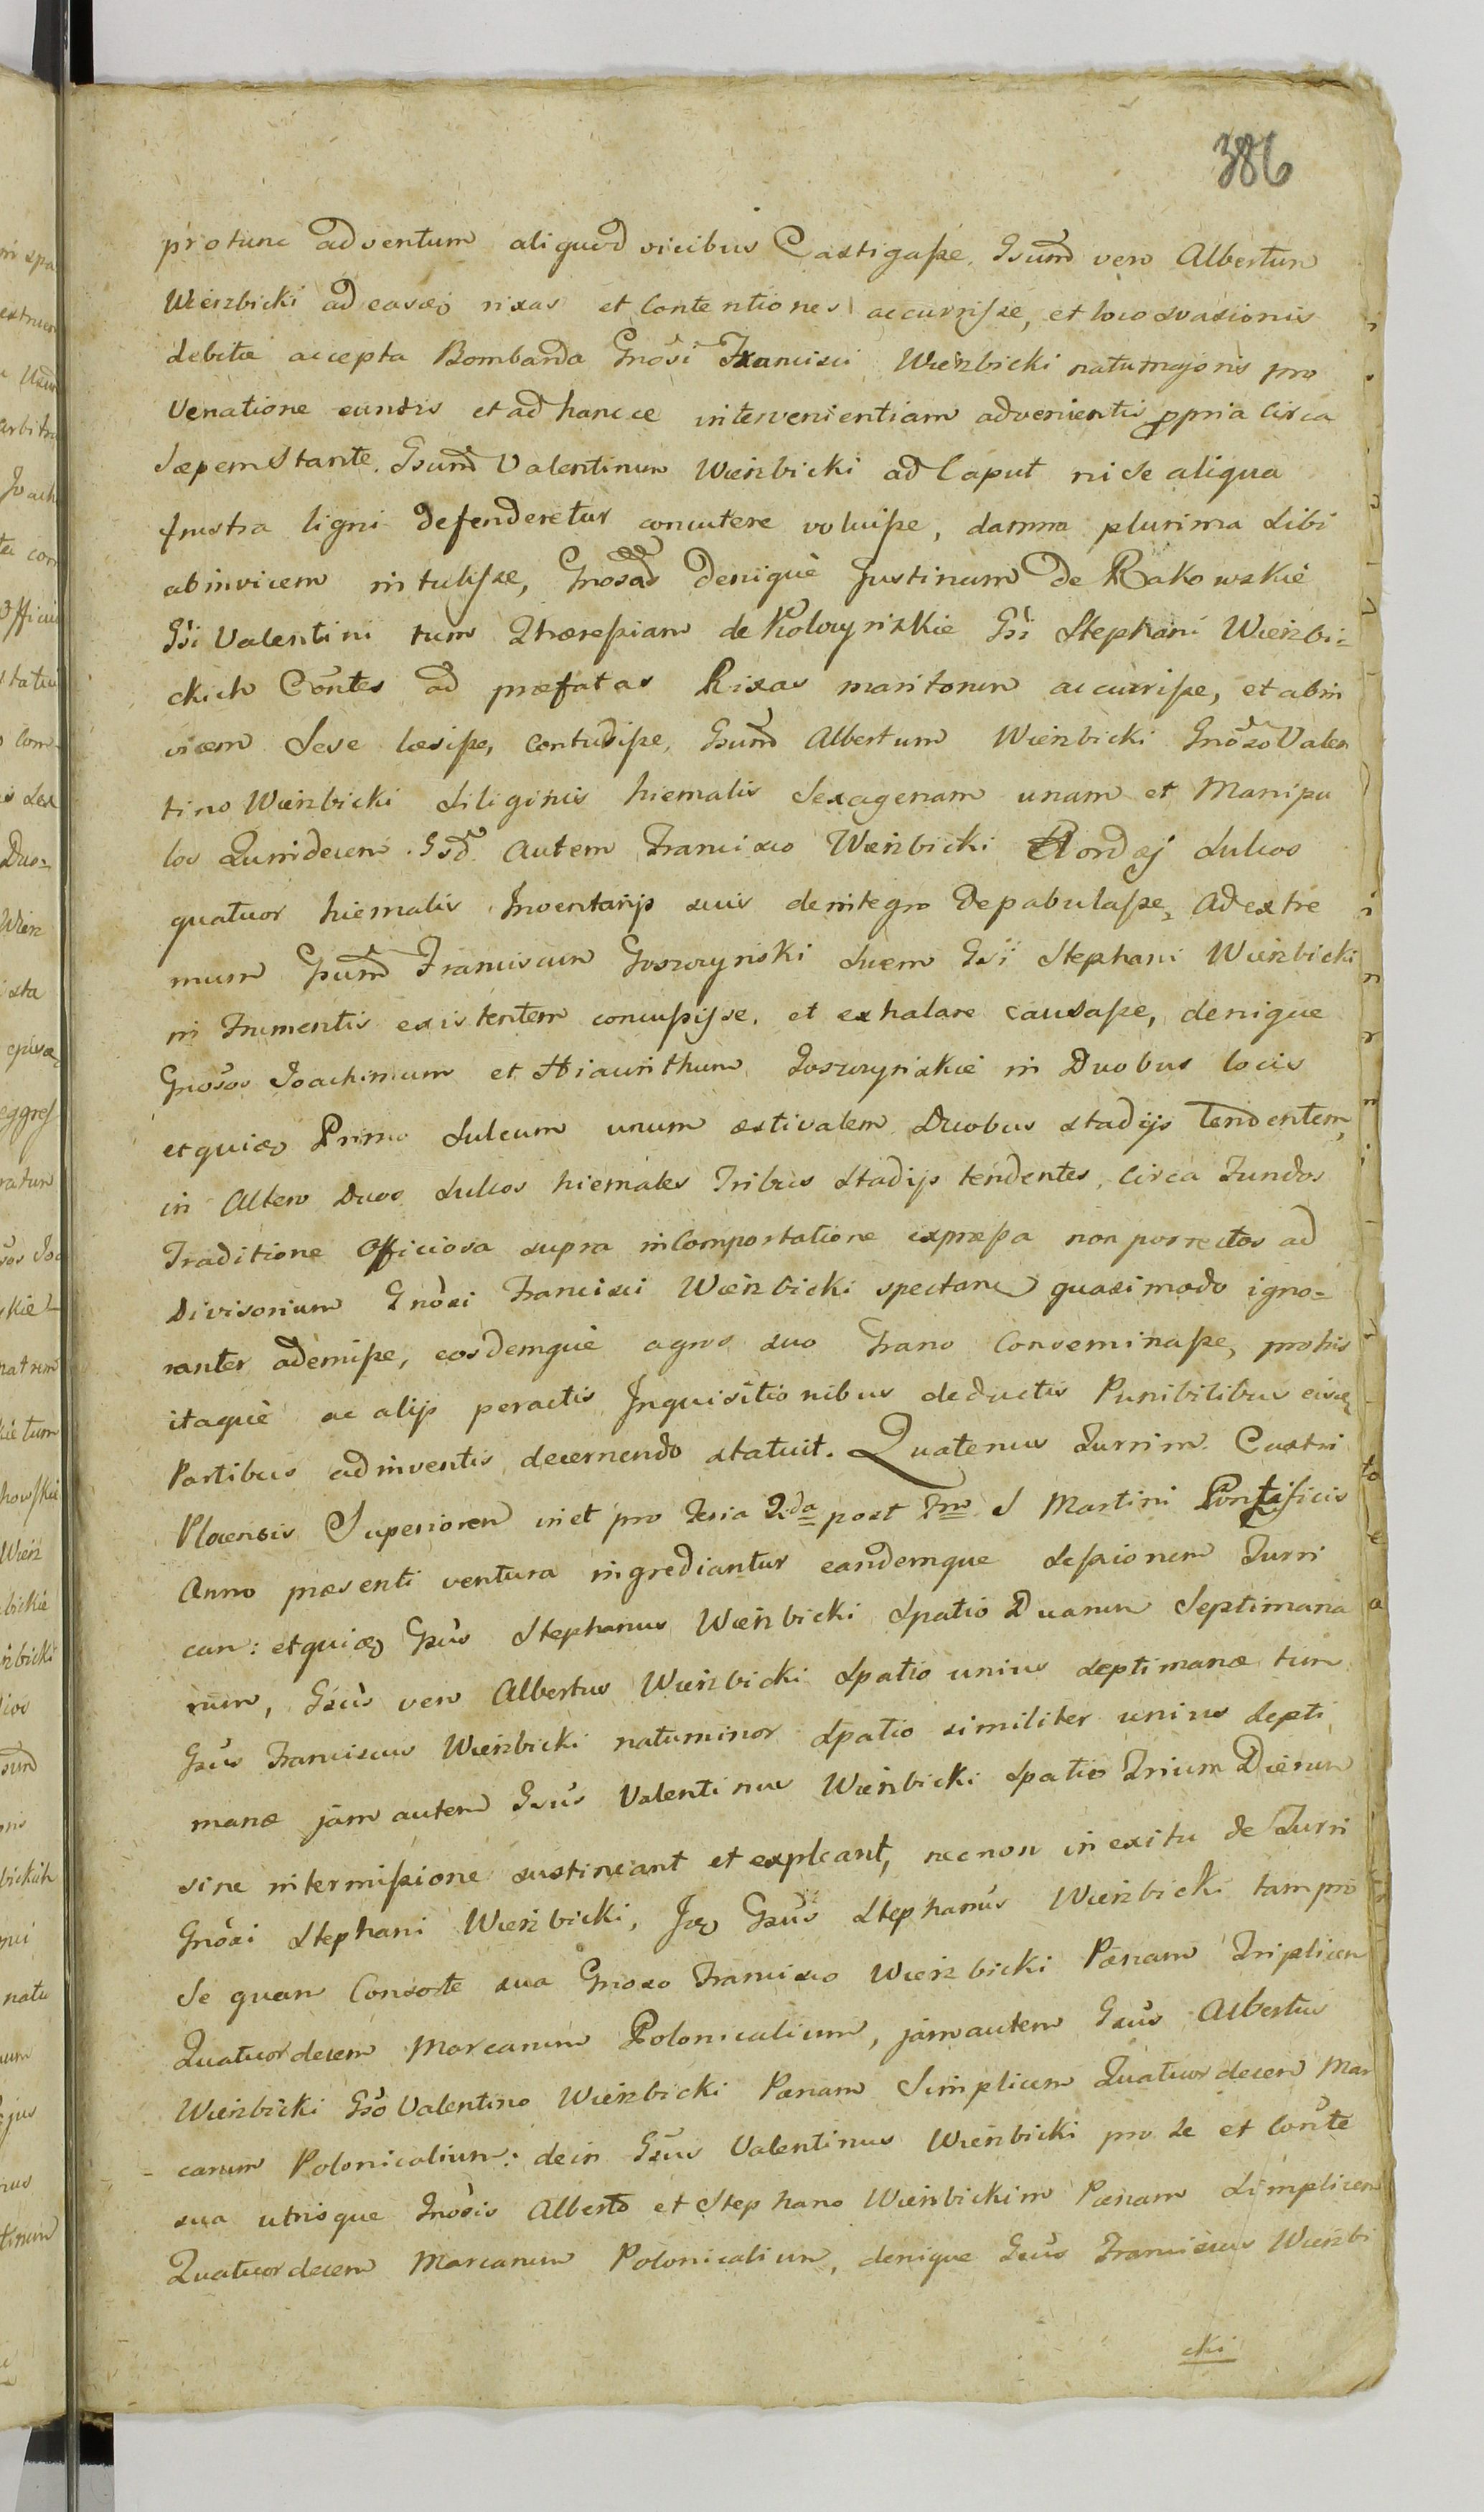 386
protunc adventum aliquod vicibus Castigaſse. Gsum̃ vero Albertum
Wierzbicki ad easq̃ rixas et Contentiones accurriſse, et loco svasionis
debitæ accepta Bombarda Gnõsi Francisci Wierzbicki natu majoris pro
Venatione euntis et ad hancce intervenientiam advenientis propria Circa
Sæpem Stante. Gsum̃ Valentinum Wierzbicki ad Caput ni se aliqua
frustra ligni defenderetur concutere voluiſse, damna plurima Sibi
abinvicem intuliſse, Gnosas deniquè Justinam de Rakowskie
Gsi Valentini tum Thæreſsiam de Kolczynskie Gsi Stephani Wierzbi=
ckich Cõntes ad præfatas Rixas maritorum accurriſse, et abin
vicem Sese læsiſse, contudiſse, Gsum̃ Albertum Wierzbicki Gnõso Valen
tino Wierzbicki Siliginis hiemalis Sexagenam unam et Manipu
los Quindecem. Gsõ Autem Francisco Wierzbicki Hordej Sulcos
quatuor hiemalis Inventarijs suis de integro depabulaſse, Ad extre
mum Gsum̃ Franciscum Goszczynski Suem Gsi Stephani Wierzbicki
in Frumentis existentem concuſsiſse, et exhalare causaſse, denique
Gnõsos Joachimum et Hiacinthum Goszczynskie in Duobus locis
et quiq̃ Primo Sulcum unum æstivalem Duobus stadijs Tendentem,
in Altero Duos Sulcos hiemales Tribus Stadijs tendentes, Circa Fundos
Traditione Officiosa supra in Comportatione expreſsa non porrectos ad
Divisorium Gnõsi Francisci Wierzbicki spectan̄ quasimodo igno=
ranter ademiſse, eosdemquè agros suo Grano Conseminaſse, pro his
itaquè ac alijs peractis Inquisitionibus deductis Punibilibus eisq̃
Partibus adinventis decernendo statuit. Quatenus Turrim Castri
Plocensis Superiorem in et pro Feria 2da post Fm S Martini Pontificis
Anno præsenti ventura ingrediantur eandemque Seſsionem Turri
can: et quiq̃ Gsus Stephanus Wierzbicki Spatio Duarum Septimana
rum, Gsus vero Albertus Wierzbicki Spatio unius Septimanæ tum
Gsus Franciscus Wierzbicki natuminor Spatio similiter unius Septi
manæ jàm autem Gsus Valentinus Wierzbicki Spatio Trium Dierum
sine intermiſsione sustineant et expleant, nec non in exitu de Turri
Gnõsi Stephani Wierzbicki, Iq̃ Gsus Stephanus Wierzbicki tam pro
Se quam Consorte sua Gnoso Francisco Wierzbicki Pænam Triplicem
Quatuordecem Marcarum Polonicalium, jàm autem Gsus Albertus
Wierzbicki Gsõ Valentino Wierzbicki Pænam Simplicem Quatuordecem Mar
carum Polonicalium: dein Gsus Valentinus Wierzbicki pro Se et Con̄te
sua utrisque Gnõsis Alberto et Stephano Wierzbickim Pænam Simplicem
Quatuordecem Marcarum Polonicalium, denique Gsus Franciscus Wierzbi
cki